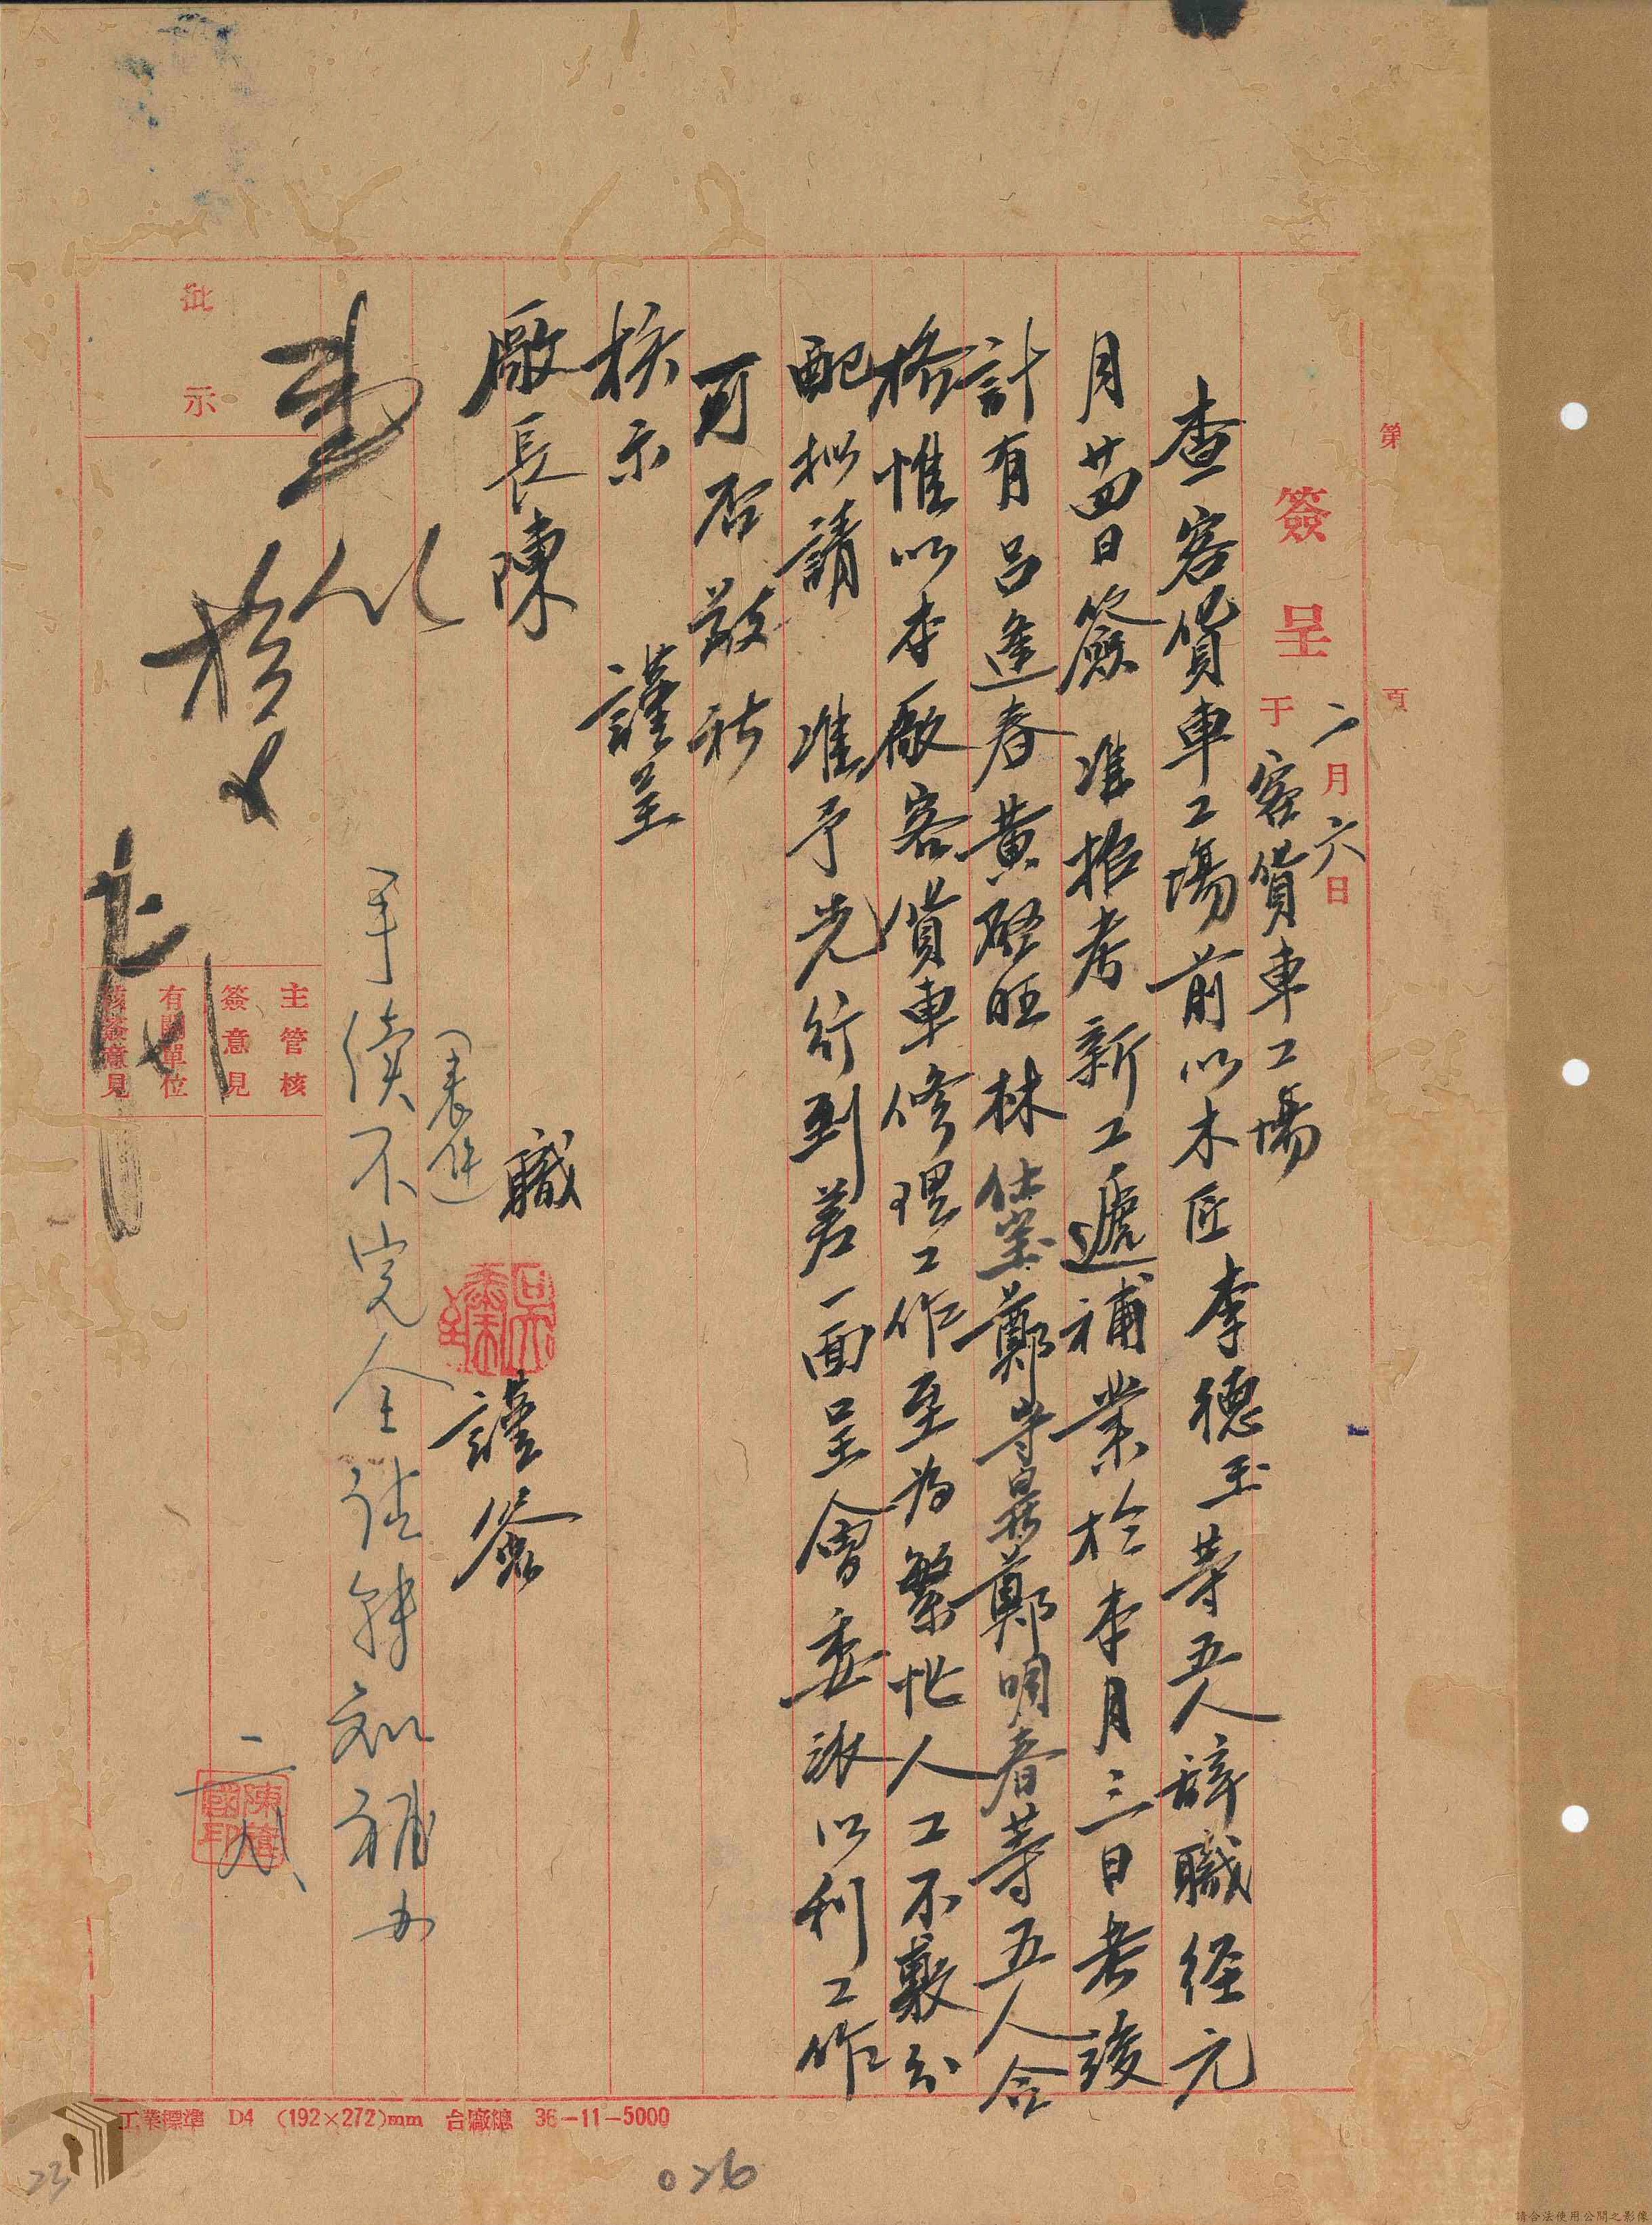 第 頁
簽呈 二月六日
于客貨車工場
查客貨車工場前以木匠李德玉等五人辞職経元
月廿四日簽 准招考新工遞補業於本月三日考竣
計有呂進春黃啓旺林仕鄭鄭明春等五人合
格惟以本廠客貨車修理工作至為繁忙人工不敷分
配拟請 准予先行到差一面呈會委派以利工作
可否敬祈
核示 謹呈
廠長陳
職 謹簽
吳
手續不完全請轉知補办
陳國印
批示
主管核
簽意見
有關單位
核簽意見
工業標準 D4 (192×272)mm 台廠總 36-11-5000
026
23
請合法使用公開之影像